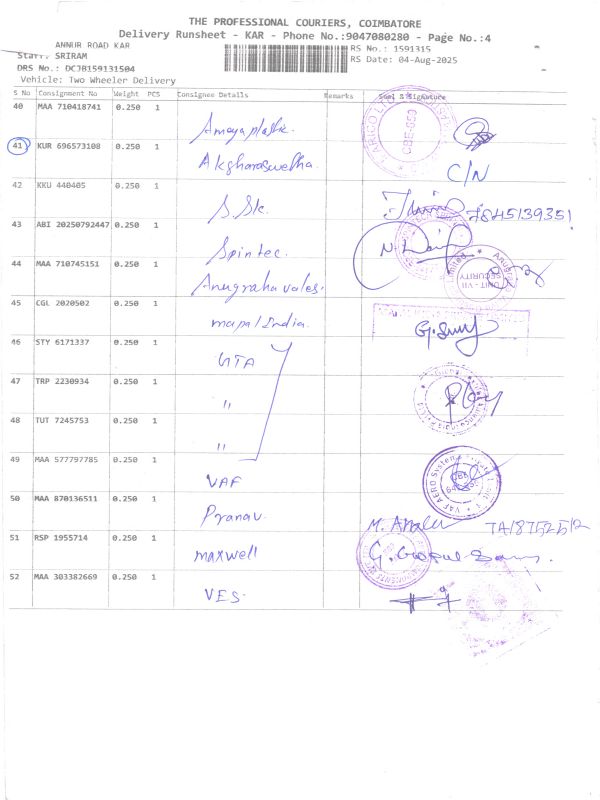 THE PROFESSIONAL COURIERS, COIMBATORE
Delivery Runsheet - KAR - Phone No.:9047080280 - Page No.:4
ANNUR ROAD KAR
RS No.: 1591315
Staff: SRIRAM
RS Date: 04-Aug-2025
DRS No.: DCJB159131504
Vehicle: Two Wheeler Delivery
S No Consignment No Weight PCS Consignee Details Remarks Seal & Signature
40 MAA 710418741 0.250 1 Amaya plastic.
41 KUR 696573108 0.250 1 Aksharaswetha. C/N
42 KKU 440405 0.250 1 S.Sk. 7845139351
43 ABI 20250792447 0.250 1 Spintec.
44 MAA 710745151 0.250 1 Anugraha vales.
45 CGL 2020502 0.250 1 mapal India.
46 STY 6171337 0.250 1 GTA
47 TRP 2230934 0.250 1 "
48 TUT 7245753 0.250 1 "
49 MAA 577797785 0.250 1 VAF
50 MAA 870136511 0.250 1 Pranav.
51 RSP 1955714 0.250 1 maxwell
52 MAA 303382669 0.250 1 VES.